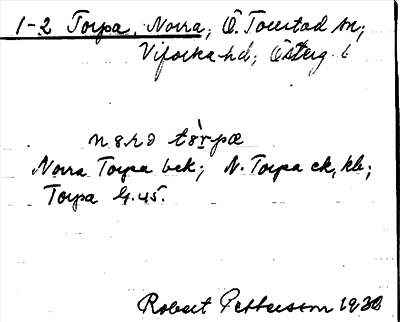 1-2 Torpa, Norra; Ö. Tollstad sn;
Vifolka hd; Österg. l
nørd tørpæ
Norra Torpa bek; N. Torpa ek, kb;
Torpa G.45.
Robert Pettersson 1930